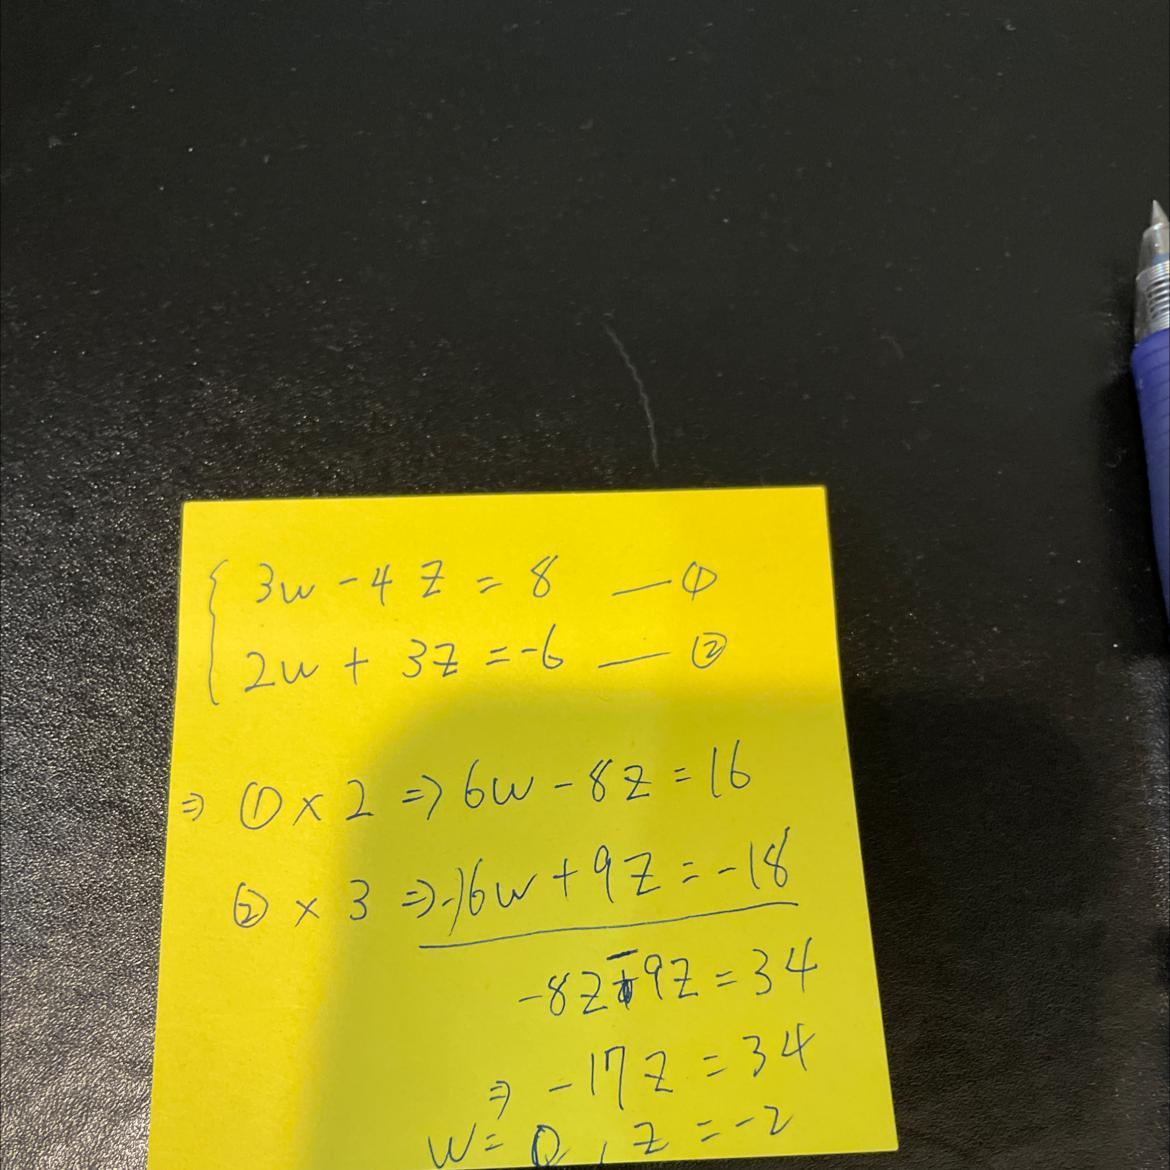 { 3w - 4z = 8 — ①
2w + 3z = -6 — ②
⇒ ① × 2 ⇒ 6w - 8z = 16
② × 3 ⇒ -) 6w + 9z = -18
-8z - 9z = 34
⇒ -17z = 34
w = 0, z = -2